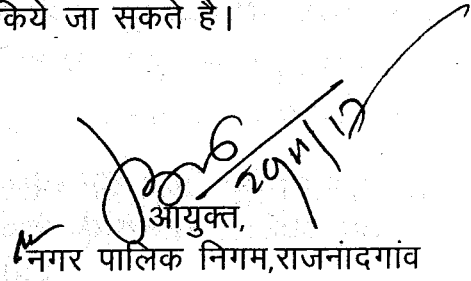 किये जा सकते है।
आयुक्त,
नगर पालिक निगम,राजनांदगांव